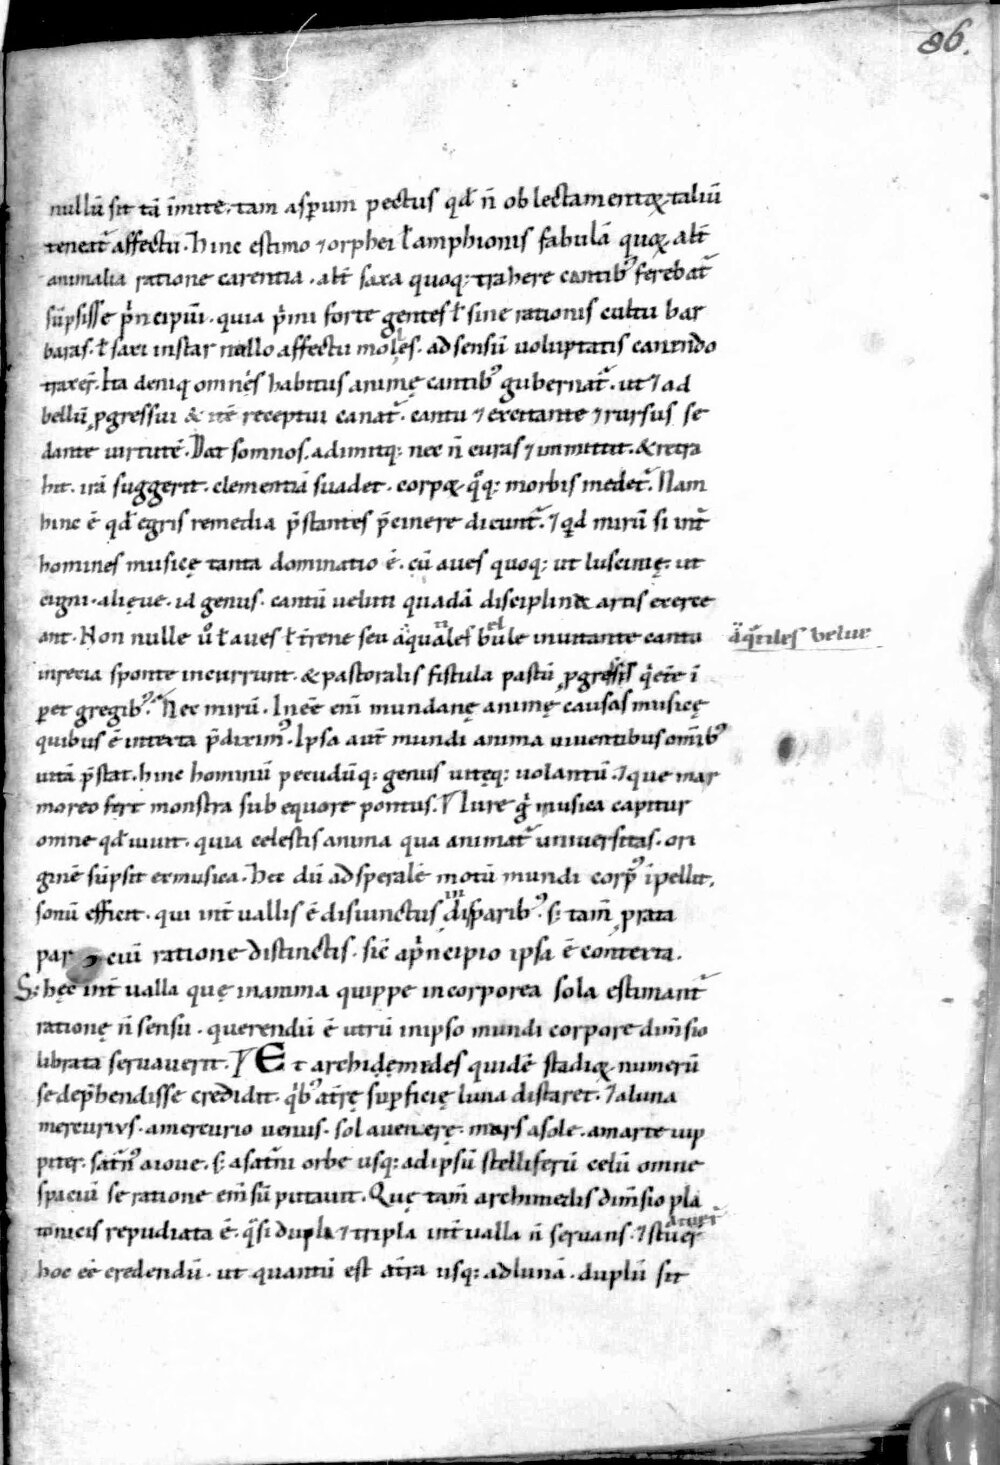 86.
nullū sit tā īmite. tam asꝑum pectus qđ ñ oblectamentoꝝ taliū
teneat᷑ affectu. Hinc estimo ⁊ orphei ł amphionis fabulā quoꝝ alt̄
animalia ratione carentia. alt̄ saxa quoq; trahere cantibꝰ ferebat᷑
sūpsisse p̓ncipiū. quia p̓mi forte gentes ł sine rationis cultu bar
baras. ł saxi instar nullo affectu moles. ad sensū voluptatis canendo
traxer̄. Ita deniq omnes habitus animę cantibꝰ gubernat᷑. ut ⁊ ad
bellū ꝓgressui & itē receptui canat᷑. cantu ⁊ excitante ⁊ rursus se
dante uirtutē. Dat somnos. adimitq; nec ñ curas ⁊ immittit. & retra
hit. irā suggerit. clementiā suadet. corpoꝝ q̊q; morbis medet᷑. Nam
hinc ē qđ egris remedia p̄stantes p̄cinere dicunt᷑. ⁊ qd mirū si int̄
homines musicę tanta dominatio ē. cū aues quoq; ut luscinię. ut
cigni. alięue. id genus. cantū ueluti quadā disciplina artis exerce
ant. Non nulle ů ł aues ł t̄rene seu aquales bule inuitante cantu
aq̄tiles belue
in recia sponte incurrunt. & pastoralis fistula pastū ꝓgressis q̓etē ī
ꝑet gregibꝰ. Nec mirū. Inēē enī mundanę animę causas musicę
quibus ē intexta p̄diximꝰ. Ipsa aut̄ mundi anima uiuentibus om̄ibꝰ
uitā p̄stat. hinc hominū pecudūq; genus uitęq; uolantū. ⁊ que mar
moreo fert monstra sub equore pontus. Iure g̊ musica capitur
omne qđ uiuit. quia celestis anima qua animat᷑ uniuersitas. ori
ginē sūpsit ex musica. Hec dū ad speralē motū mundi corpꝰ īpellit.
sonū efficit. qui int̄uallis ē disiunctus in disparibꝰ. s; tam̄ ꝓ rata
par ciū ratione distinctis. sic̄ a p̓ncipio ipsa ē contexta.
S; hęc int̄ualla quę in anima quippe incorporea sola estimant᷑
rationę ñ sensu. querendū ē utrū in ipso mundi corpore dim̄sio
librata seruauerit. Et archidęmides quidē stadioꝝ numerū
se dep̄hendisse credidit. q̓bꝰ a t̄rę suꝑficię luna distaret. ⁊ a luna
mercurius. a mercurio uenus. sol a uenerę. mars a sole. a marte iup
piter. sat̄nꝰ a ioue. s; a sat̄ni orbe usq; ad ipsū stelliferū celū omne
spaciū se ratione em̄sū putauit. Quę tam̄ archimedis dim̄sio pla
tonicis repudiata ē. q̄si dupla ⁊ tripla int̄ualla ñ seruans. ⁊ stuer
hoc eē credendū. ut quantū est a t̄ra usq; ad lunā. duplū sit